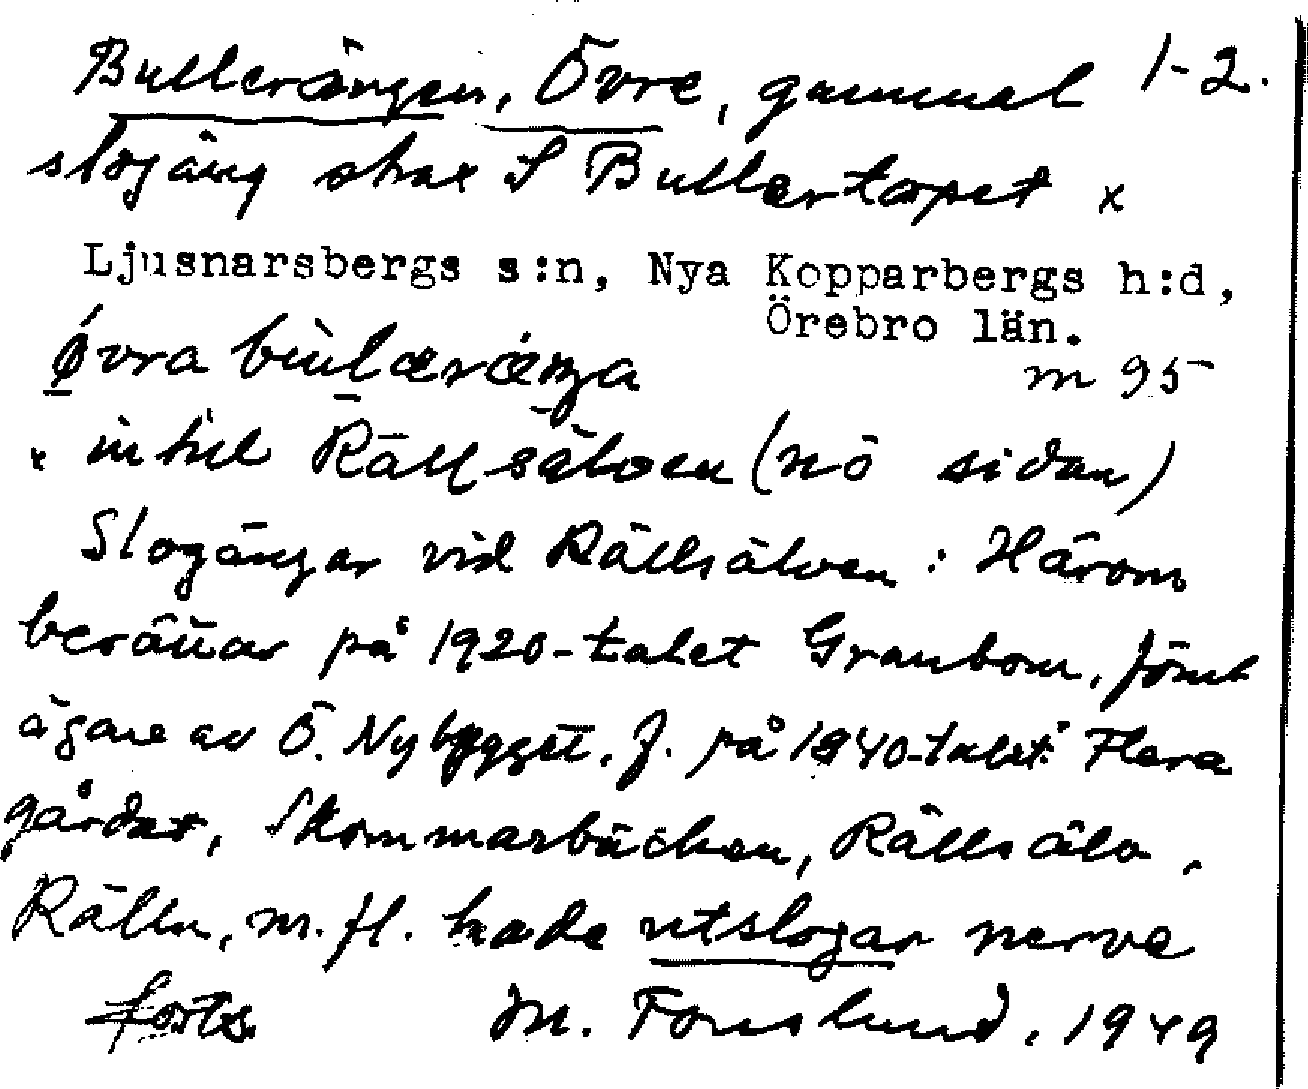 Bullerängen, Övre, gammal 1-2.
slogäng strax S Bullertorpet x
Ljusnarsbergs s:n, Nya Kopparbergs h:d,
Örebro län.
m 95
x intill Rällsälven (nö sidan)
Slogängar vid Rällsälven: Härom
berättar på 1920-talet Granbom, förut
ägare av Ö. Nybygget, f. på 1840-talet: Flera
gårdar, Skommarbäcken, Rällsälv,
Rälln, m.fl. hade utslogar nerve
forts M. Fornslund, 1949